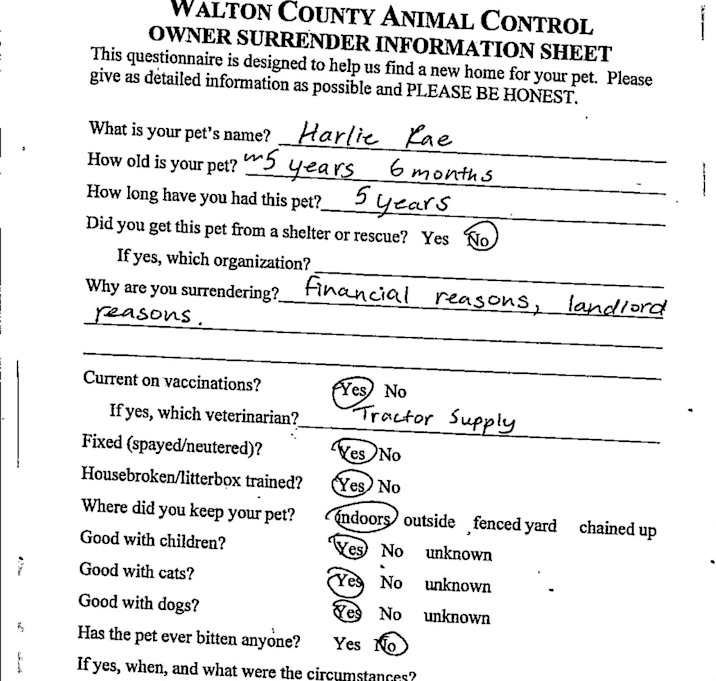 WALTON COUNTY ANIMAL CONTROL
OWNER SURRENDER INFORMATION SHEET
This questionnaire is designed to help us find a new home for your pet. Please
give as detailed information as possible and PLEASE BE HONEST.
What is your pet's name? Harlie Rae
How old is your pet? 5 years 6 months
How long have you had this pet? 5 years
Did you get this pet from a shelter or rescue? Yes No
If yes, which organization?
Why are you surrendering? financial reasons, landlord
reasons.
Current on vaccinations? Yes No
If yes, which veterinarian? Tractor Supply
Fixed (spayed/neutered)? Yes No
Housebroken/litterbox trained? Yes No
Where did you keep your pet? indoors outside fenced yard chained up
Good with children? Yes No unknown
Good with cats? Yes No unknown
Good with dogs? Yes No unknown
Has the pet ever bitten anyone? Yes No
If yes, when, and what were the circumstances?